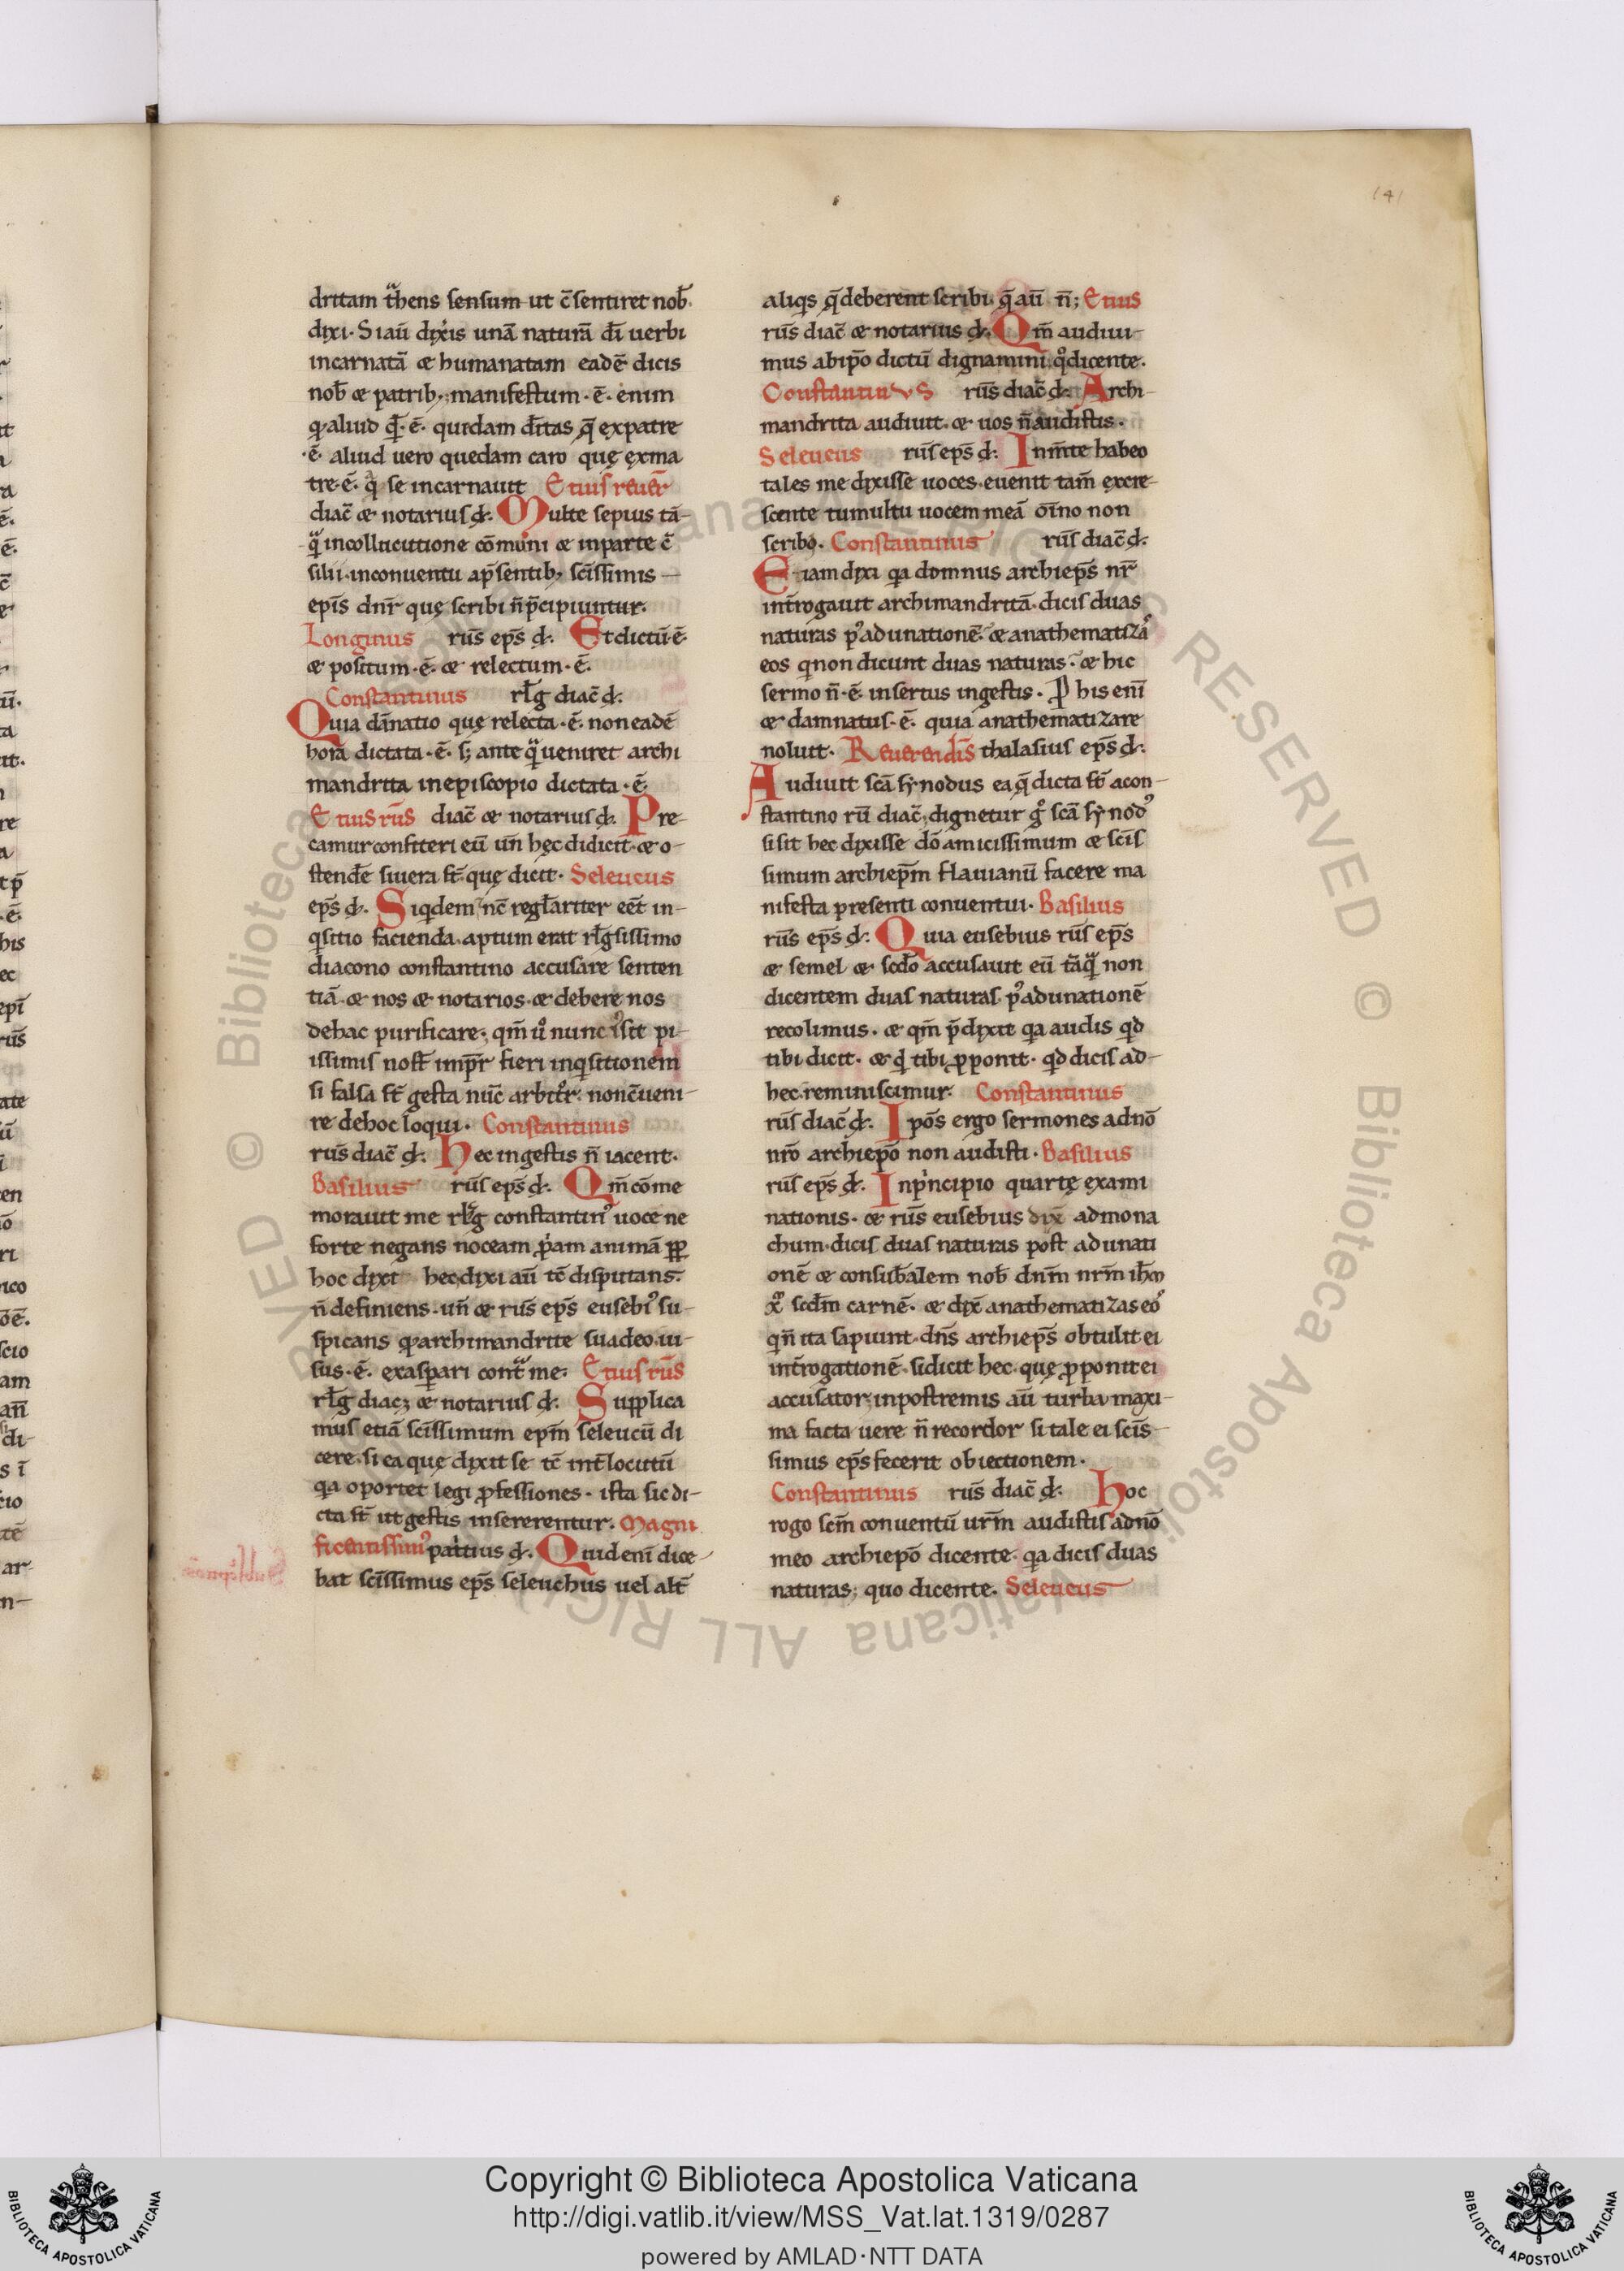 141
dritam trahens sensum ut c̄sentiret nob̄.
dixi. Si aū dixeris unā naturā dī uerbi
incarnatā & humanatam eadē dicis
nob̄ & patrib; manifestum .ē. enim
qđ aliud qđ .ē. quedam d̄itas q̄ ex patre
.ē. aliud uero quedam caro quę ex ma
tre .ē. q̄ se incarnauit Etius reuer̄
diac̄ & notarius đ. Multe sepius tā-
q̄ in collucutione cōmuni & in parte c̄
silii. in conuentu a p̄sentib; sc̄issimis
ep̄is dn̄r quę scribi n̄ p̄cipiuntur.
Longinus rūs ep̄s đ. Et dictū .ē.
& positum .ē. & relectum .ē.
Constantinus rl̄g diac̄ đ.
Quia dānatio quę relecta .ē. non eadē
hora dictata .ē. s; ante q̄ ueniret archi
mandrita in episcopio dictata .ē.
Etius rūs diac̄ & notarius đ. Pre-
camur confiteri eū un̄ hęc didicit. & o-
stendē si uera st̄ quę dicit. Seleucus
ep̄s đ. Siqdem nc̄ regl̄ariter eēt in-
qsitio facienda. aptum erat rl̄gsissimo
diacono constantino accusare senten
tiā. & nos & notarios. & debere nos
de hac purificare; qm̄ u° nunc iusit pi-
issimis nost̄ imp̄r fieri inqsitionem
si falsa st̄ gesta nūc arbitr̄. non c̄ueni-
re de hoc loqui. Constantinus
rūs diac̄ đ. Hec in gestis n̄ iacent.
Basilius rūs ep̄s đ. Qm̄ cōme
morauit me rl̄g constantin' uoce ne
forte negans noceam p̄am animā pp̄
hoc dixi hec dixi aū tc̄ disputans.
n̄ definiens. un̄ & rūs ep̄s eusebi' su-
spicans qđ archimandrite suadeo. ui-
sus .ē. exasp̄ari cont̄ me. Etius rūs
rl̄g diac; & notarius đ. Supplica
mus etiā sc̄issimum ep̄m seleucū di
cere. si ea quę dixit se tc̄ int̄locutū
qa oportet legi p̄fessiones. ista sic di-
cta st̄ ut gestis insererentur. Magni
ficentissim' patitius đ. Quid enī dice-
bat sc̄issimus ep̄s seleuchus uel alt̄
aliqs q̄ deberent scribi. q̄ aū n̄; Etius
rūs diac̄ & notarius đ. Qm̄ audiui-
mus ab ip̄o dictū dignamini. q° dicente.
Constantinus rūs diac̄ đ. Archi-
mandrita audiuit. & uos n̄ audistis.
Seleucus rūs ep̄s đ. In m̄te habeo
tales me dixisse uoces. euenit tam̄ excre-
scente tumultu uocem meā oīno non
scribo. Constantinus rūs diac̄ đ.
Etiam dixi qa domnus archiep̄s nr̄
int̄rogauit archimandritā. dicis duas
naturas p' adunationē. & anathematiza'
eos q non dicunt duas naturas. & hic
sermo n̄ .ē. insertus in gestis. P his enī
& damnatus .ē. quia anathematizare
noluit. Reuerendīs thalasius ep̄s đ.
Audiuit sc̄a synodus ea q̄ dicta st̄ a con-
stantino rū diac̄; dignetur g° sc̄a synod'
si sit hec dixisse dō amicissimum & sc̄is
simum archiep̄m flauianū facere ma
nifesta presenti conuentui. Basilius
rūs ep̄s đ. Quia eusebius rūs ep̄s
& semel & scđo accusauit eū tāq̄ non
dicentem duas naturas p' adunationē
recolimus. & qm̄ p̄dixit qa audis qđ
tibi dicit. & q tibi p̄ponit. qđ dicis ad-
hec. reminiscimur. Constantinus
rūs diac̄ đ. Ipōs ergo sermones a dnō
nr̄o archiepō non audisti. Basilius
rūs ep̄s đ. In principio quartę exami
nationis. & rūs eusebius dix̄ ad mona
chum. dicis duas naturas post adunati
onē & consub̄alem nob̄ dnm̄ nrm̄ ih̄m
x̄ scđm carnē. & dix̄ anathematizas eo'
q n̄ ita sapiunt. dn̄s archiep̄s obtulit ei
int̄rogationē. si dicit hec. quę p̄ponit ei
accusator; in postremis aū turba maxi-
ma facta uere n̄ recordor si tale ei sc̄is-
simus ep̄s fecerit obiectionem.
Constantinus rūs diac̄ đ. Hoc
rogo sc̄m conuentū urm̄ audistis a dnō
meo archiepō dicente. qa dicis duas
naturas; quo dicente. Seleucus
Copyright © Biblioteca Apostolica Vaticana
http://digi.vatlib.it/view/MSS_Vat.lat.1319/0287
powered by AMLAD·NTT DATA
BIBLIOTECA APOSTOLICA VATICANA
BIBLIOTECA APOSTOLICA VATICANA